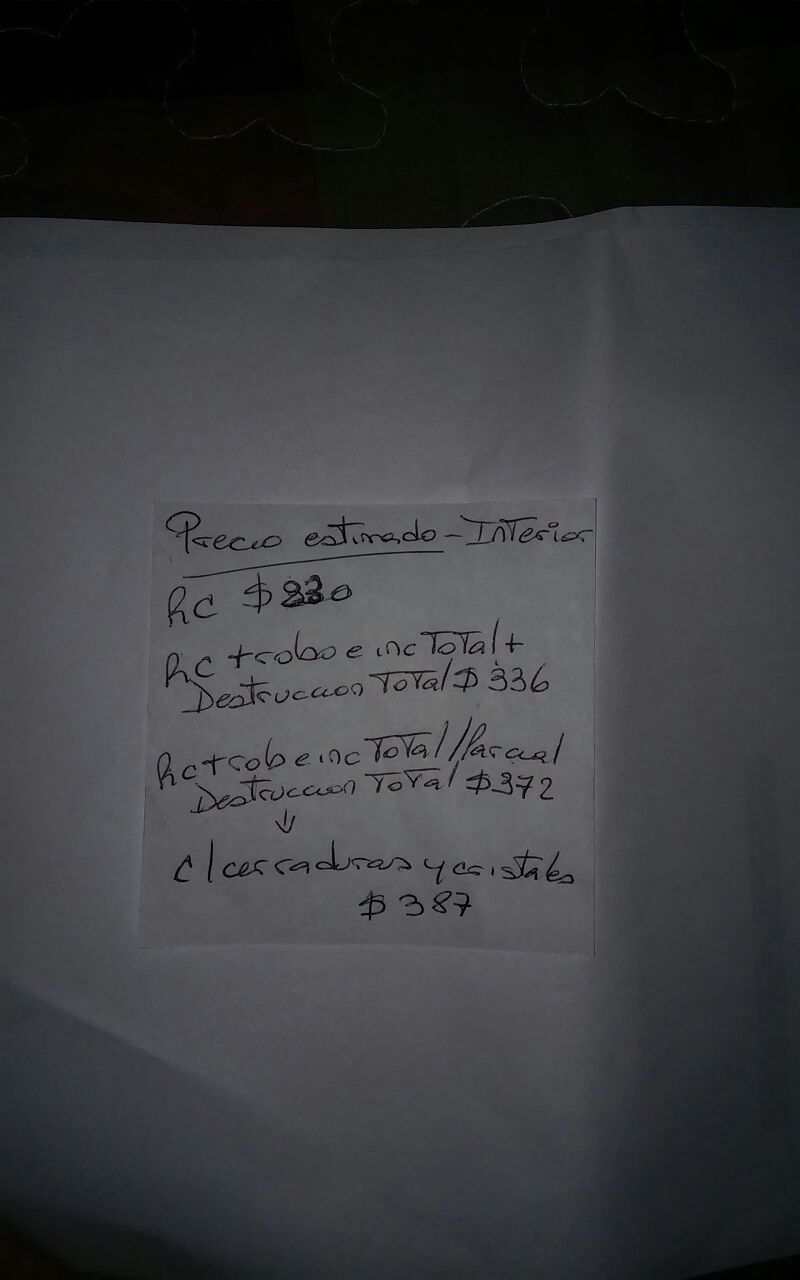 Precio estimado - Interior
RC $
RC + robo e inc Total +
Destruccion Total $ 336
Rc + rob e inc Total // Parcial
Destruccion Total $ 372
↓
c/ cerraduras y cristales
$ 387